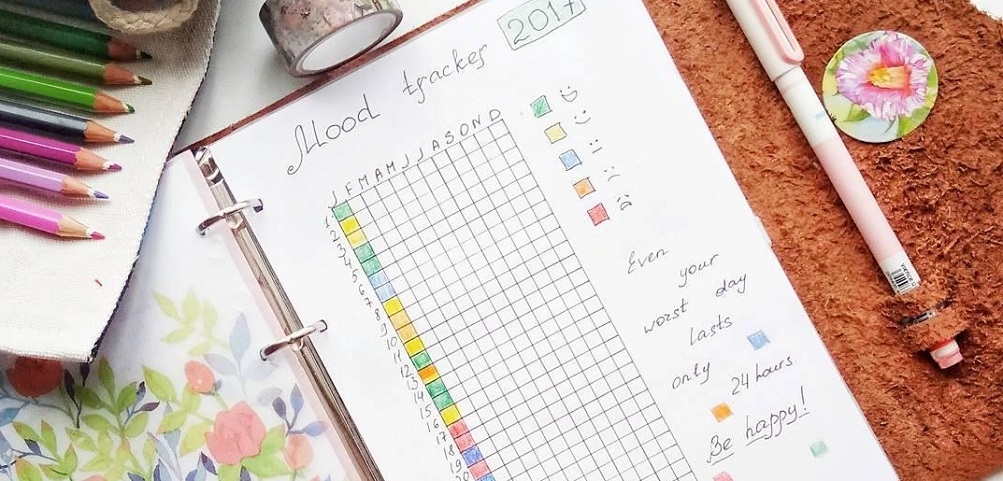 2017
Mood tracker
J F M A M J J A S O N D
1
2
3
4
5
6
7
8
9
10
11
12
13
14
15
16
17
18
19
20
Even your
worst day
lasts
only 24 hours
Be happy!